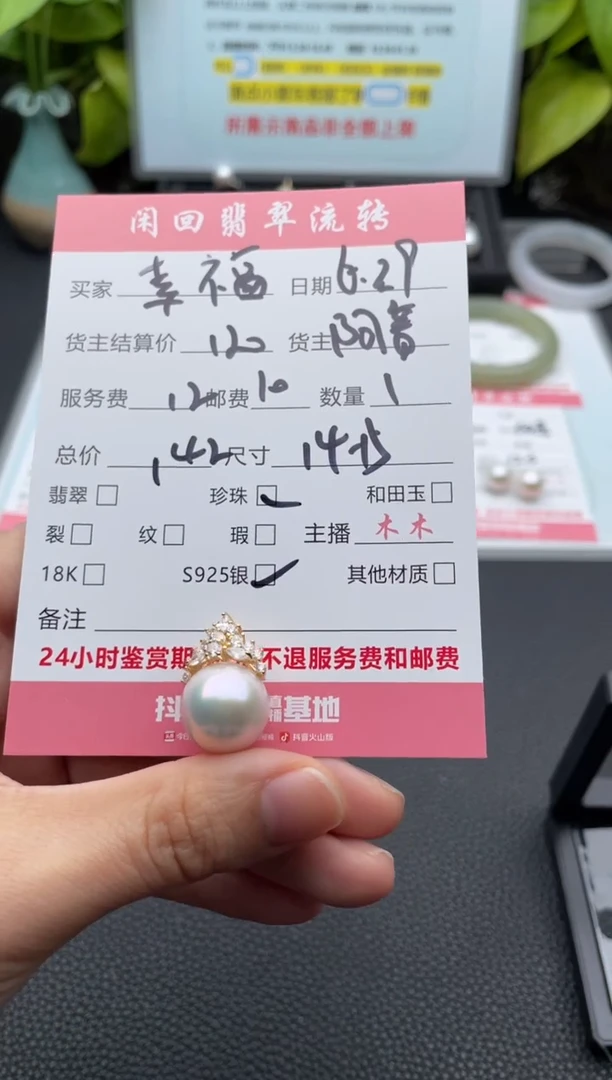 闲回翡翠流转
买家 幸福 日期 6.29
货主结算价 120 货主 阿蓉
服务费 12 邮费 10 数量 1
总价 142 尺寸 14-15
翡翠 珍珠 和田玉
裂 纹 瑕 主播 木木
18K S925银 其他材质
备注
24小时鉴赏期 不退服务费和邮费
抖 基地
抖音火山版